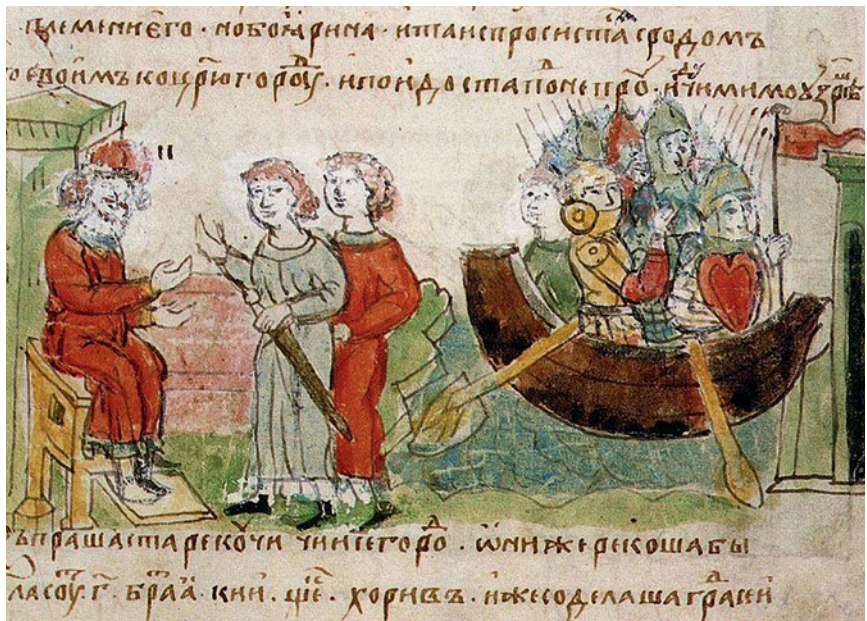 племени єго · но боꙗрина · и та испросиста с родомъ
своимъ ко цр҃югороⷣу · и поидоста по непрꙋ · идꙋчи мимо ꙋзрѣ
въпрашаста рекꙋчи чии се гороⷣ · ѡни же рекоша бы
ла соуⷮ · г҃ · браⷮꙗ · кии · щеⷦ · хоривъ · иже соделаша граⷣ сеи